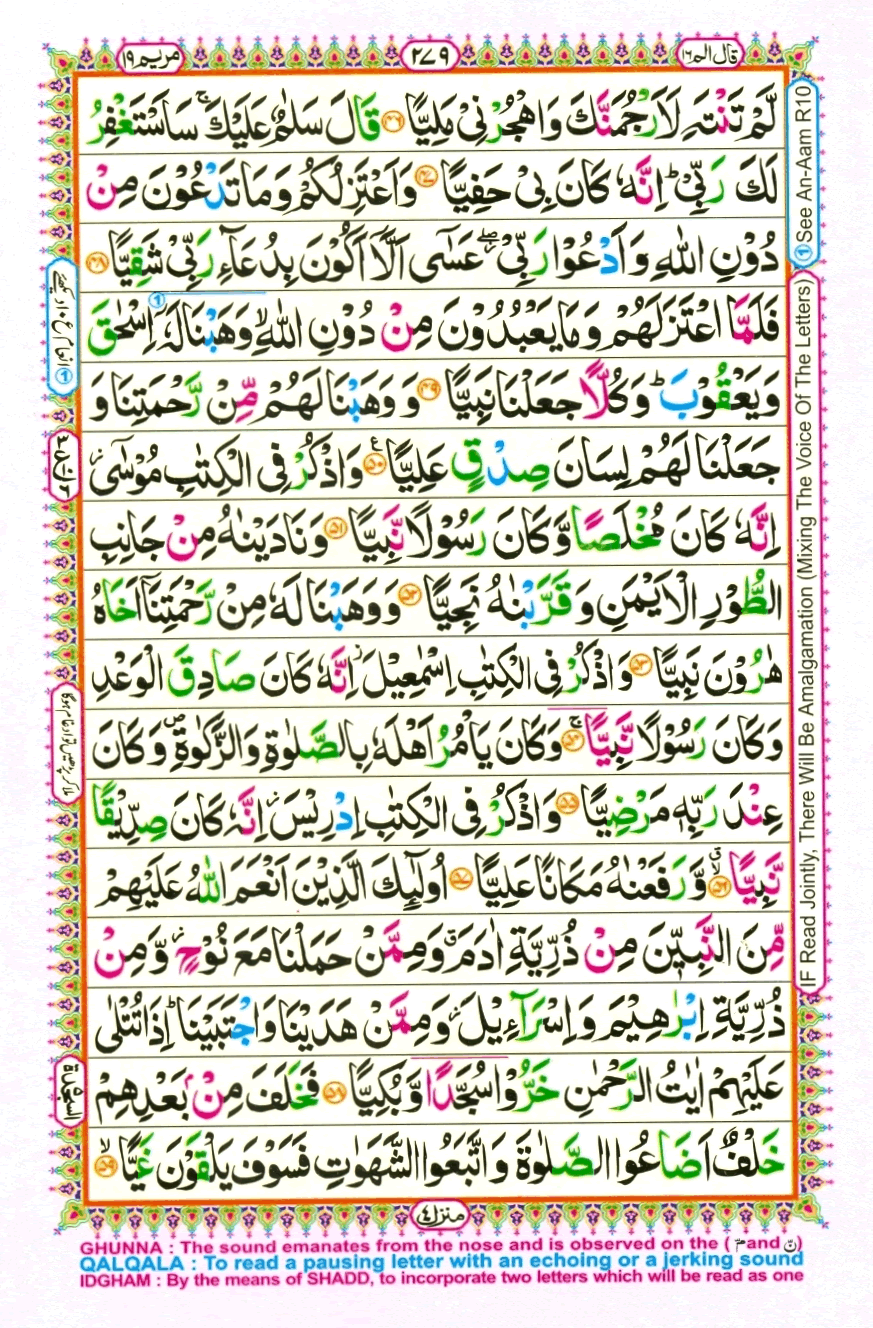 قال الم ١٦
٢٧٩
مريم ١٩
لَّمْ تَنْتَهِ لَاَرْجُمَنَّكَ وَاهْجُرْنِىْ مَلِيًّا ﴿۴۶﴾ قَالَ سَلٰمٌ عَلَيْكَ ۚ سَاَسْتَغْفِرُ
لَكَ رَبِّىْ ؕ اِنَّهٗ كَانَ بِىْ حَفِيًّا ﴿۴۷﴾ وَاَعْتَزِلُكُمْ وَمَا تَدْعُوْنَ مِنْ
دُوْنِ اللّٰهِ وَاَدْعُوْا رَبِّىْ ۖ عَسٰٓى اَلَّاۤ اَكُوْنَ بِدُعَآءِ رَبِّىْ شَقِيًّا ﴿۴۸﴾
فَلَمَّا اعْتَزَلَهُمْ وَمَا يَعْبُدُوْنَ مِنْ دُوْنِ اللّٰهِ ۙ وَهَبْنَا لَهٗۤ اِسْحٰقَ
وَيَعْقُوْبَ ؕ وَكُلًّا جَعَلْنَا نَبِيًّا ﴿۴۹﴾ وَوَهَبْنَا لَهُمْ مِّنْ رَّحْمَتِنَا وَ
جَعَلْنَا لَهُمْ لِسَانَ صِدْقٍ عَلِيًّا ﴿۵۰﴾ وَاذْكُرْ فِى الْكِتٰبِ مُوْسٰٓى ز
اِنَّهٗ كَانَ مُخْلَصًا وَّكَانَ رَسُوْلًا نَّبِيًّا ﴿۵۱﴾ وَنَادَيْنٰهُ مِنْ جَانِبِ
الطُّوْرِ الْاَيْمَنِ وَقَرَّبْنٰهُ نَجِيًّا ﴿۵۲﴾ وَوَهَبْنَا لَهٗ مِنْ رَّحْمَتِنَاۤ اَخَاهُ
هٰرُوْنَ نَبِيًّا ﴿۵۳﴾ وَاذْكُرْ فِى الْكِتٰبِ اِسْمٰعِيْلَ ز اِنَّهٗ كَانَ صَادِقَ الْوَعْدِ
وَكَانَ رَسُوْلًا نَّبِيًّا ۚ ﴿۵۴﴾ وَكَانَ يَاْمُرُ اَهْلَهٗ بِالصَّلٰوةِ وَالزَّكٰوةِ ۪ وَكَانَ
عِنْدَ رَبِّهٖ مَرْضِيًّا ﴿۵۵﴾ وَاذْكُرْ فِى الْكِتٰبِ اِدْرِيْسَ ز اِنَّهٗ كَانَ صِدِّيْقًا
نَّبِيًّا ۙ ﴿۵۶﴾ وَّرَفَعْنٰهُ مَكَانًا عَلِيًّا ﴿۵۷﴾ اُولٰٓئِكَ الَّذِيْنَ اَنْعَمَ اللّٰهُ عَلَيْهِمْ
مِّنَ النَّبِيّٖنَ مِنْ ذُرِّيَّةِ اٰدَمَ ق وَمِمَّنْ حَمَلْنَا مَعَ نُوْحٍ ز وَّمِنْ
ذُرِّيَّةِ اِبْرٰهِيْمَ وَاِسْرَآءِيْلَ ز وَمِمَّنْ هَدَيْنَا وَاجْتَبَيْنَا ؕ اِذَا تُتْلٰى
عَلَيْهِمْ اٰيٰتُ الرَّحْمٰنِ خَرُّوْا سُجَّدًا وَّبُكِيًّا ﴿۵۸﴾ فَخَلَفَ مِنْۢ بَعْدِهِمْ
خَلْفٌ اَضَاعُوا الصَّلٰوةَ وَاتَّبَعُوا الشَّهَوٰتِ فَسَوْفَ يَلْقَوْنَ غَيًّا ۙ ﴿۵۹﴾
منزل ٤
① See An-Aam R10
IF Read Jointly, There Will Be Amalgamation (Mixing The Voice Of The Letters)
① انعام ع ١٠ دیکھئے
ملا کر پڑھیں تو ادغام ہوگا
السجدة
GHUNNA : The sound emanates from the nose and is observed on the ( مّ and نّ )
QALQALA : To read a pausing letter with an echoing or a jerking sound
IDGHAM : By the means of SHADD, to incorporate two letters which will be read as one